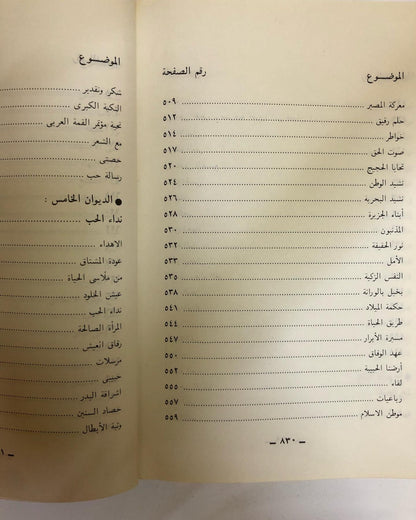 الموضـــوع رقم الصفحة
معركة المصير ٥٠٩
حلم رفيق ٥١٢
خواطر ٥١٤
صوت الحق ٥١٧
تحايا الحجيج ٥٢٠
نشيد الوطن ٥٢٤
نشيد البحرية ٥٢٦
أبناء الجزيرة ٥٢٨
المذنبون ٥٣٠
نور الحقيقة ٥٣٢
الأمل ٥٣٣
النفس الزكية ٥٣٥
بخيل بالوراثة ٥٣٨
حكمة الميلاد ٥٤١
طريق الحياة ٥٤٤
مسيرة الأبرار ٥٤٧
عهد الوفاق ٥٥٠
أرضنا الحبيبة ٥٥٢
لقاء ٥٥٥
رباعيات ٥٥٧
موطن الاسلام ٥٥٩
ــ ٨٣٠ ــ
الموضـــوع
شكر وتقدير
النكبة الكبرى
تحية مؤتمر القمة العربي
مع الشعر
خصتي
رسالة حب
● الديوان الخامس :
نداء الحب
الاهداء
عودة المشتاق
من ملاسي الحياة
عيش الخلود
نداء الحب
المرأة الصالحة
رفاق العيش
مرسلات
حبيبتي
اشراقة البدر
حصاد السنين
وثبة الأبطال